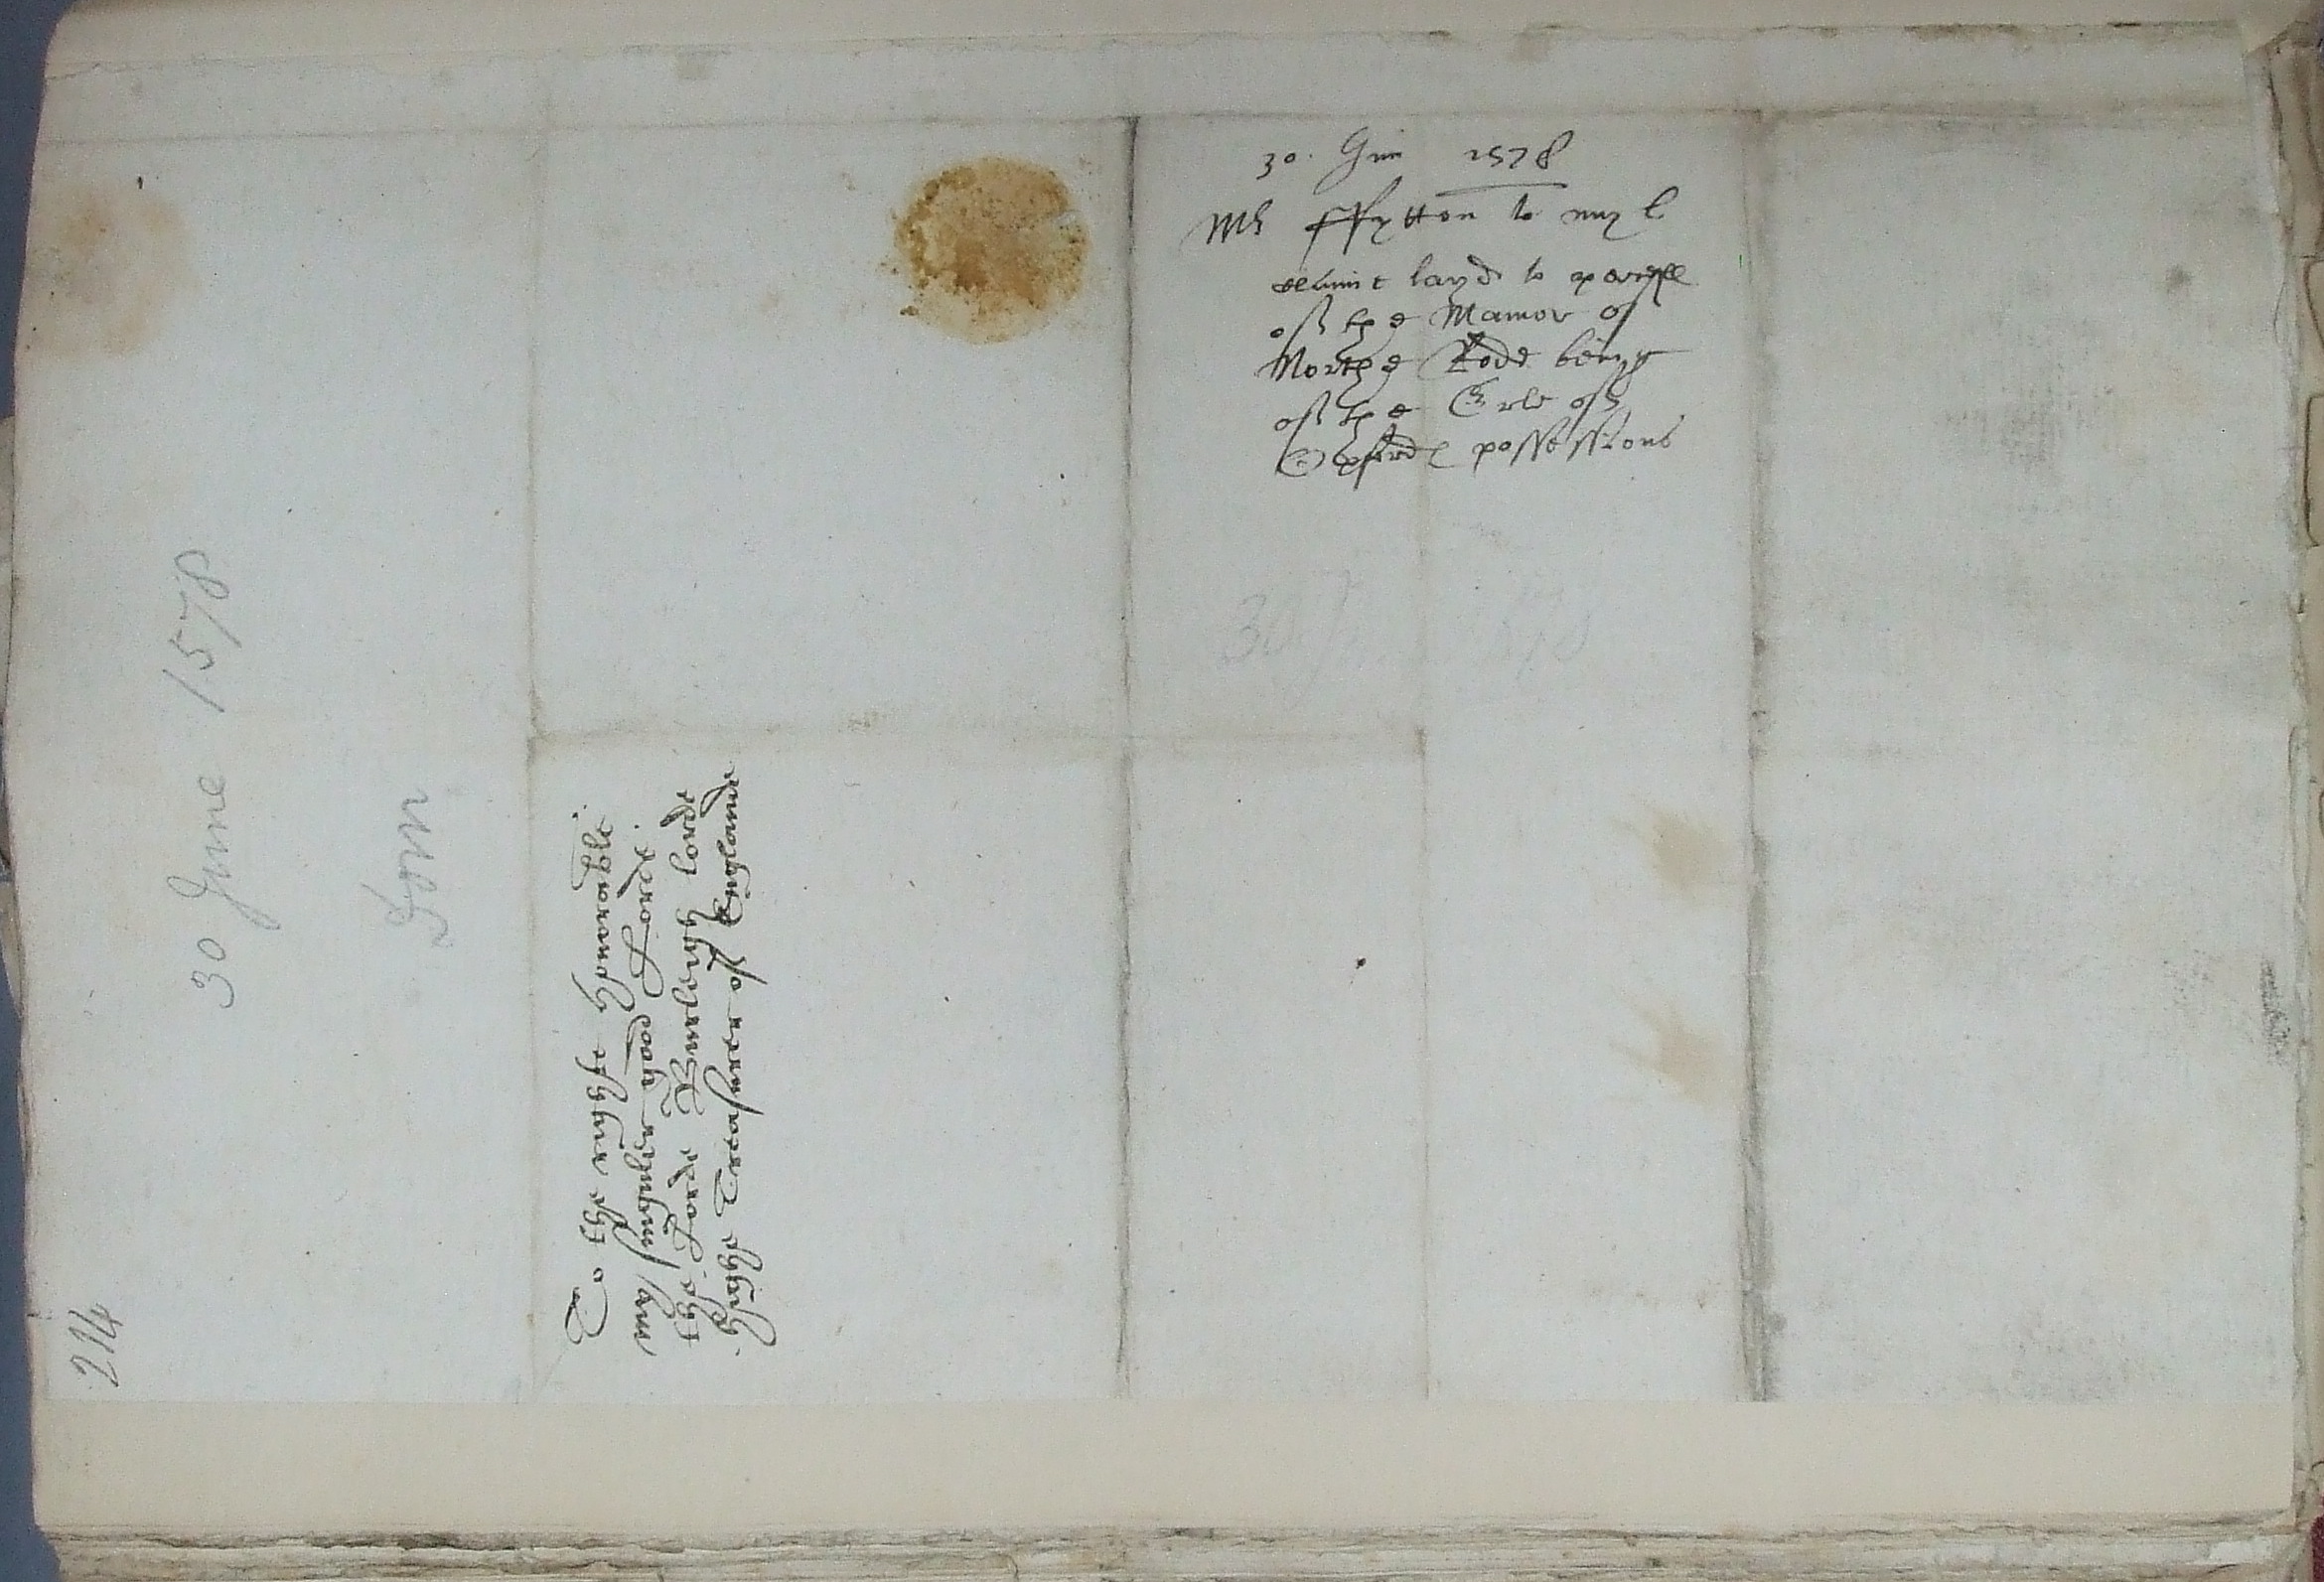 30. Jun 1578
Mr ffytton to my l
clayme layd to parcell
off the Mannor of
Northe Rode being
off the Erle off
Oxfordes possessions
To the ryght honorable
my singuler good Lorde.
the Lorde Burleigh lorde
highe Treasurer off Englande
30 June 1578
214